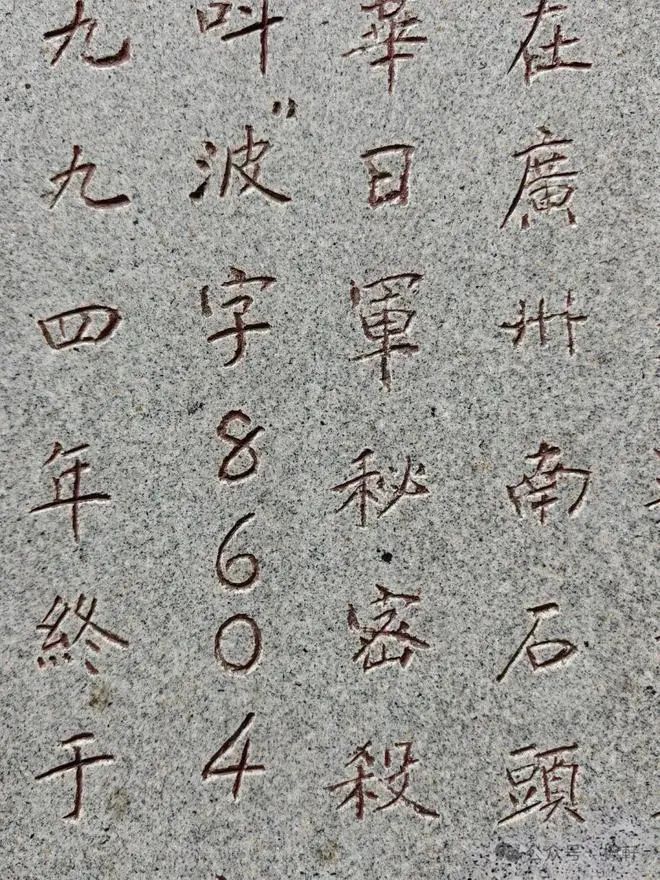 在廣州南石頭
華日軍秘密殺
叫波”字8604
九九四年終于
公众号